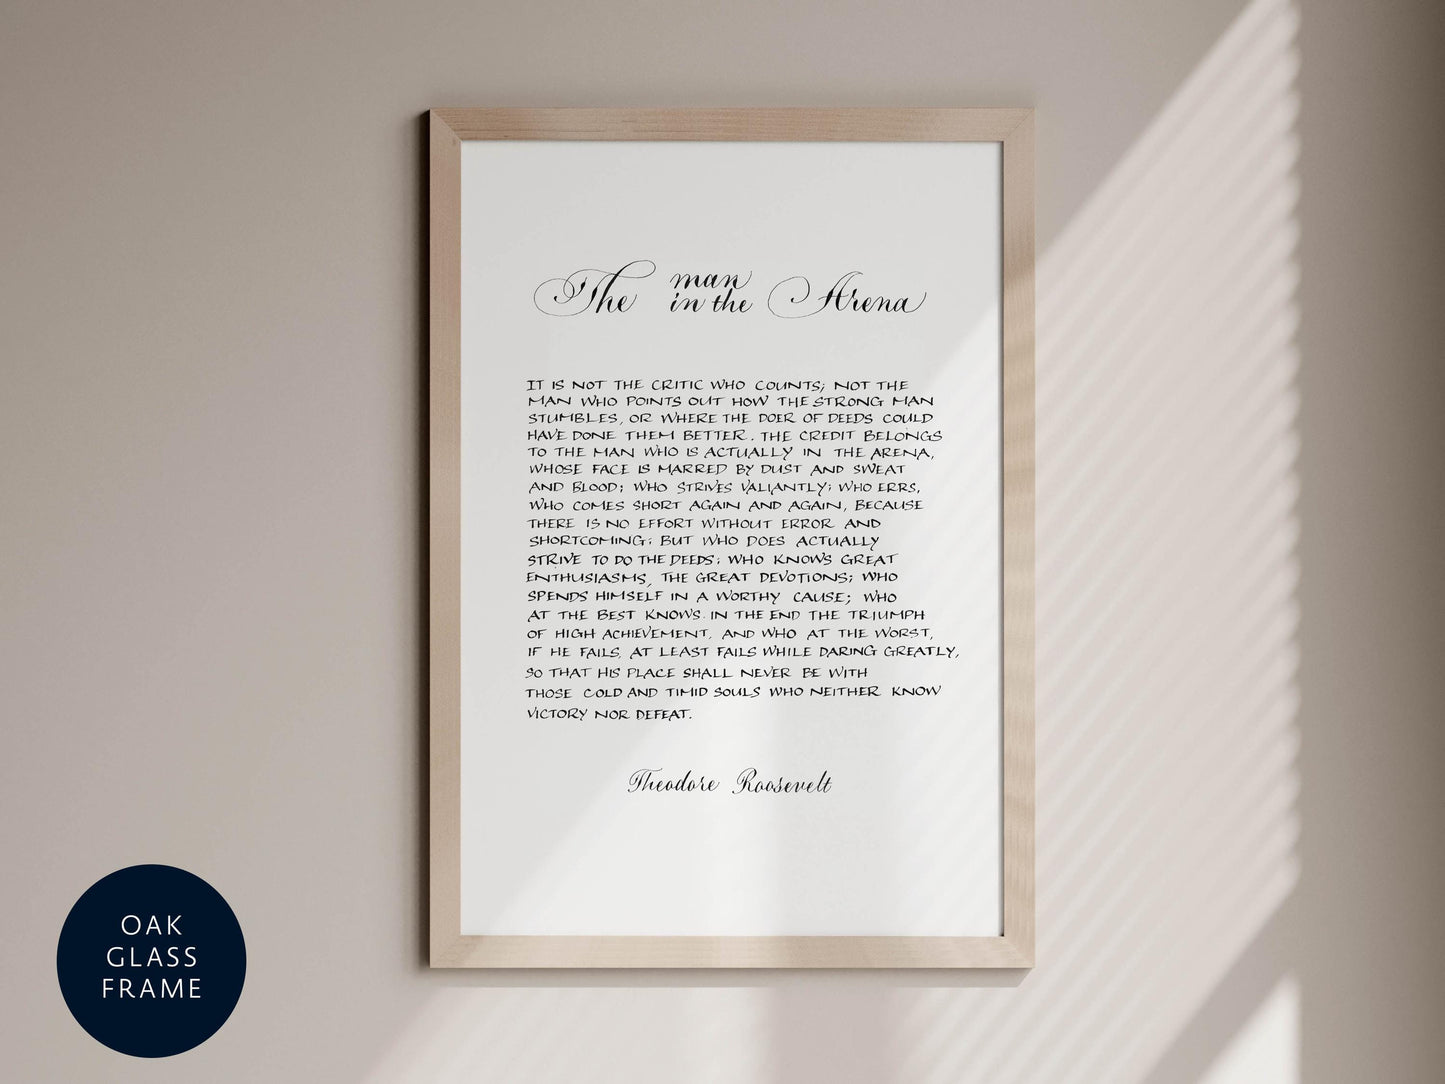 The man in the Arena
IT IS NOT THE CRITIC WHO COUNTS; NOT THE
MAN WHO POINTS OUT HOW THE STRONG MAN
STUMBLES, OR WHERE THE DOER OF DEEDS COULD
HAVE DONE THEM BETTER. THE CREDIT BELONGS
TO THE MAN WHO IS ACTUALLY IN THE ARENA,
WHOSE FACE IS MARRED BY DUST AND SWEAT
AND BLOOD; WHO STRIVES VALIANTLY; WHO ERRS,
WHO COMES SHORT AGAIN AND AGAIN, BECAUSE
THERE IS NO EFFORT WITHOUT ERROR AND
SHORTCOMING; BUT WHO DOES ACTUALLY
STRIVE TO DO THE DEEDS; WHO KNOWS GREAT
ENTHUSIASMS, THE GREAT DEVOTIONS; WHO
SPENDS HIMSELF IN A WORTHY CAUSE; WHO
AT THE BEST KNOWS IN THE END THE TRIUMPH
OF HIGH ACHIEVEMENT, AND WHO AT THE WORST,
IF HE FAILS, AT LEAST FAILS WHILE DARING GREATLY,
SO THAT HIS PLACE SHALL NEVER BE WITH
THOSE COLD AND TIMID SOULS WHO NEITHER KNOW
VICTORY NOR DEFEAT.
Theodore Roosevelt
OAK
GLASS
FRAME